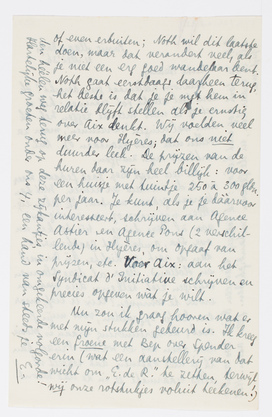 of even erbuiten; Noth wil dit laatste
doen, maar dat verandert veel, als
je niet een erg goed wandelaar bent.
Noth gaat eerstdaags daarheen terug.
het beste is dat je je met hem in
relatie blijft stellen als je ernstig
over Aix denkt. Wij voelden veel
meer voor Hyères, dat ons niet
duurder leek. De prijzen van de
huren daar zijn heel billijk: voor
een huisje met tuintje 250 à 300 gln.
per jaar. Je kunt, als je je daarvoor
interesseert, schrijven aan Agence
Astier en Agence Pons (2 verschil-
lende) in Hyères, om opgaaf van
prijzen, etc. Voor Aix: aan het
Syndicat d'Initiative schrijven en
precies opgeven wat je wilt.
Nu zou ik graag hooren wat er
met mijn stukken gebeurd is. Ik kreeg
een Groene met Bep ons Gender
erin (wat een aanstellerij van dat
wicht om "E. de R." te zetten, terwijl
wij onze rotstukjes voluit teekenen!)
We hielden veel terug op deze zijkantjes in omgekeerde volgorde!
Hartelijke groeten onder ons, een hand van steeds je
E.